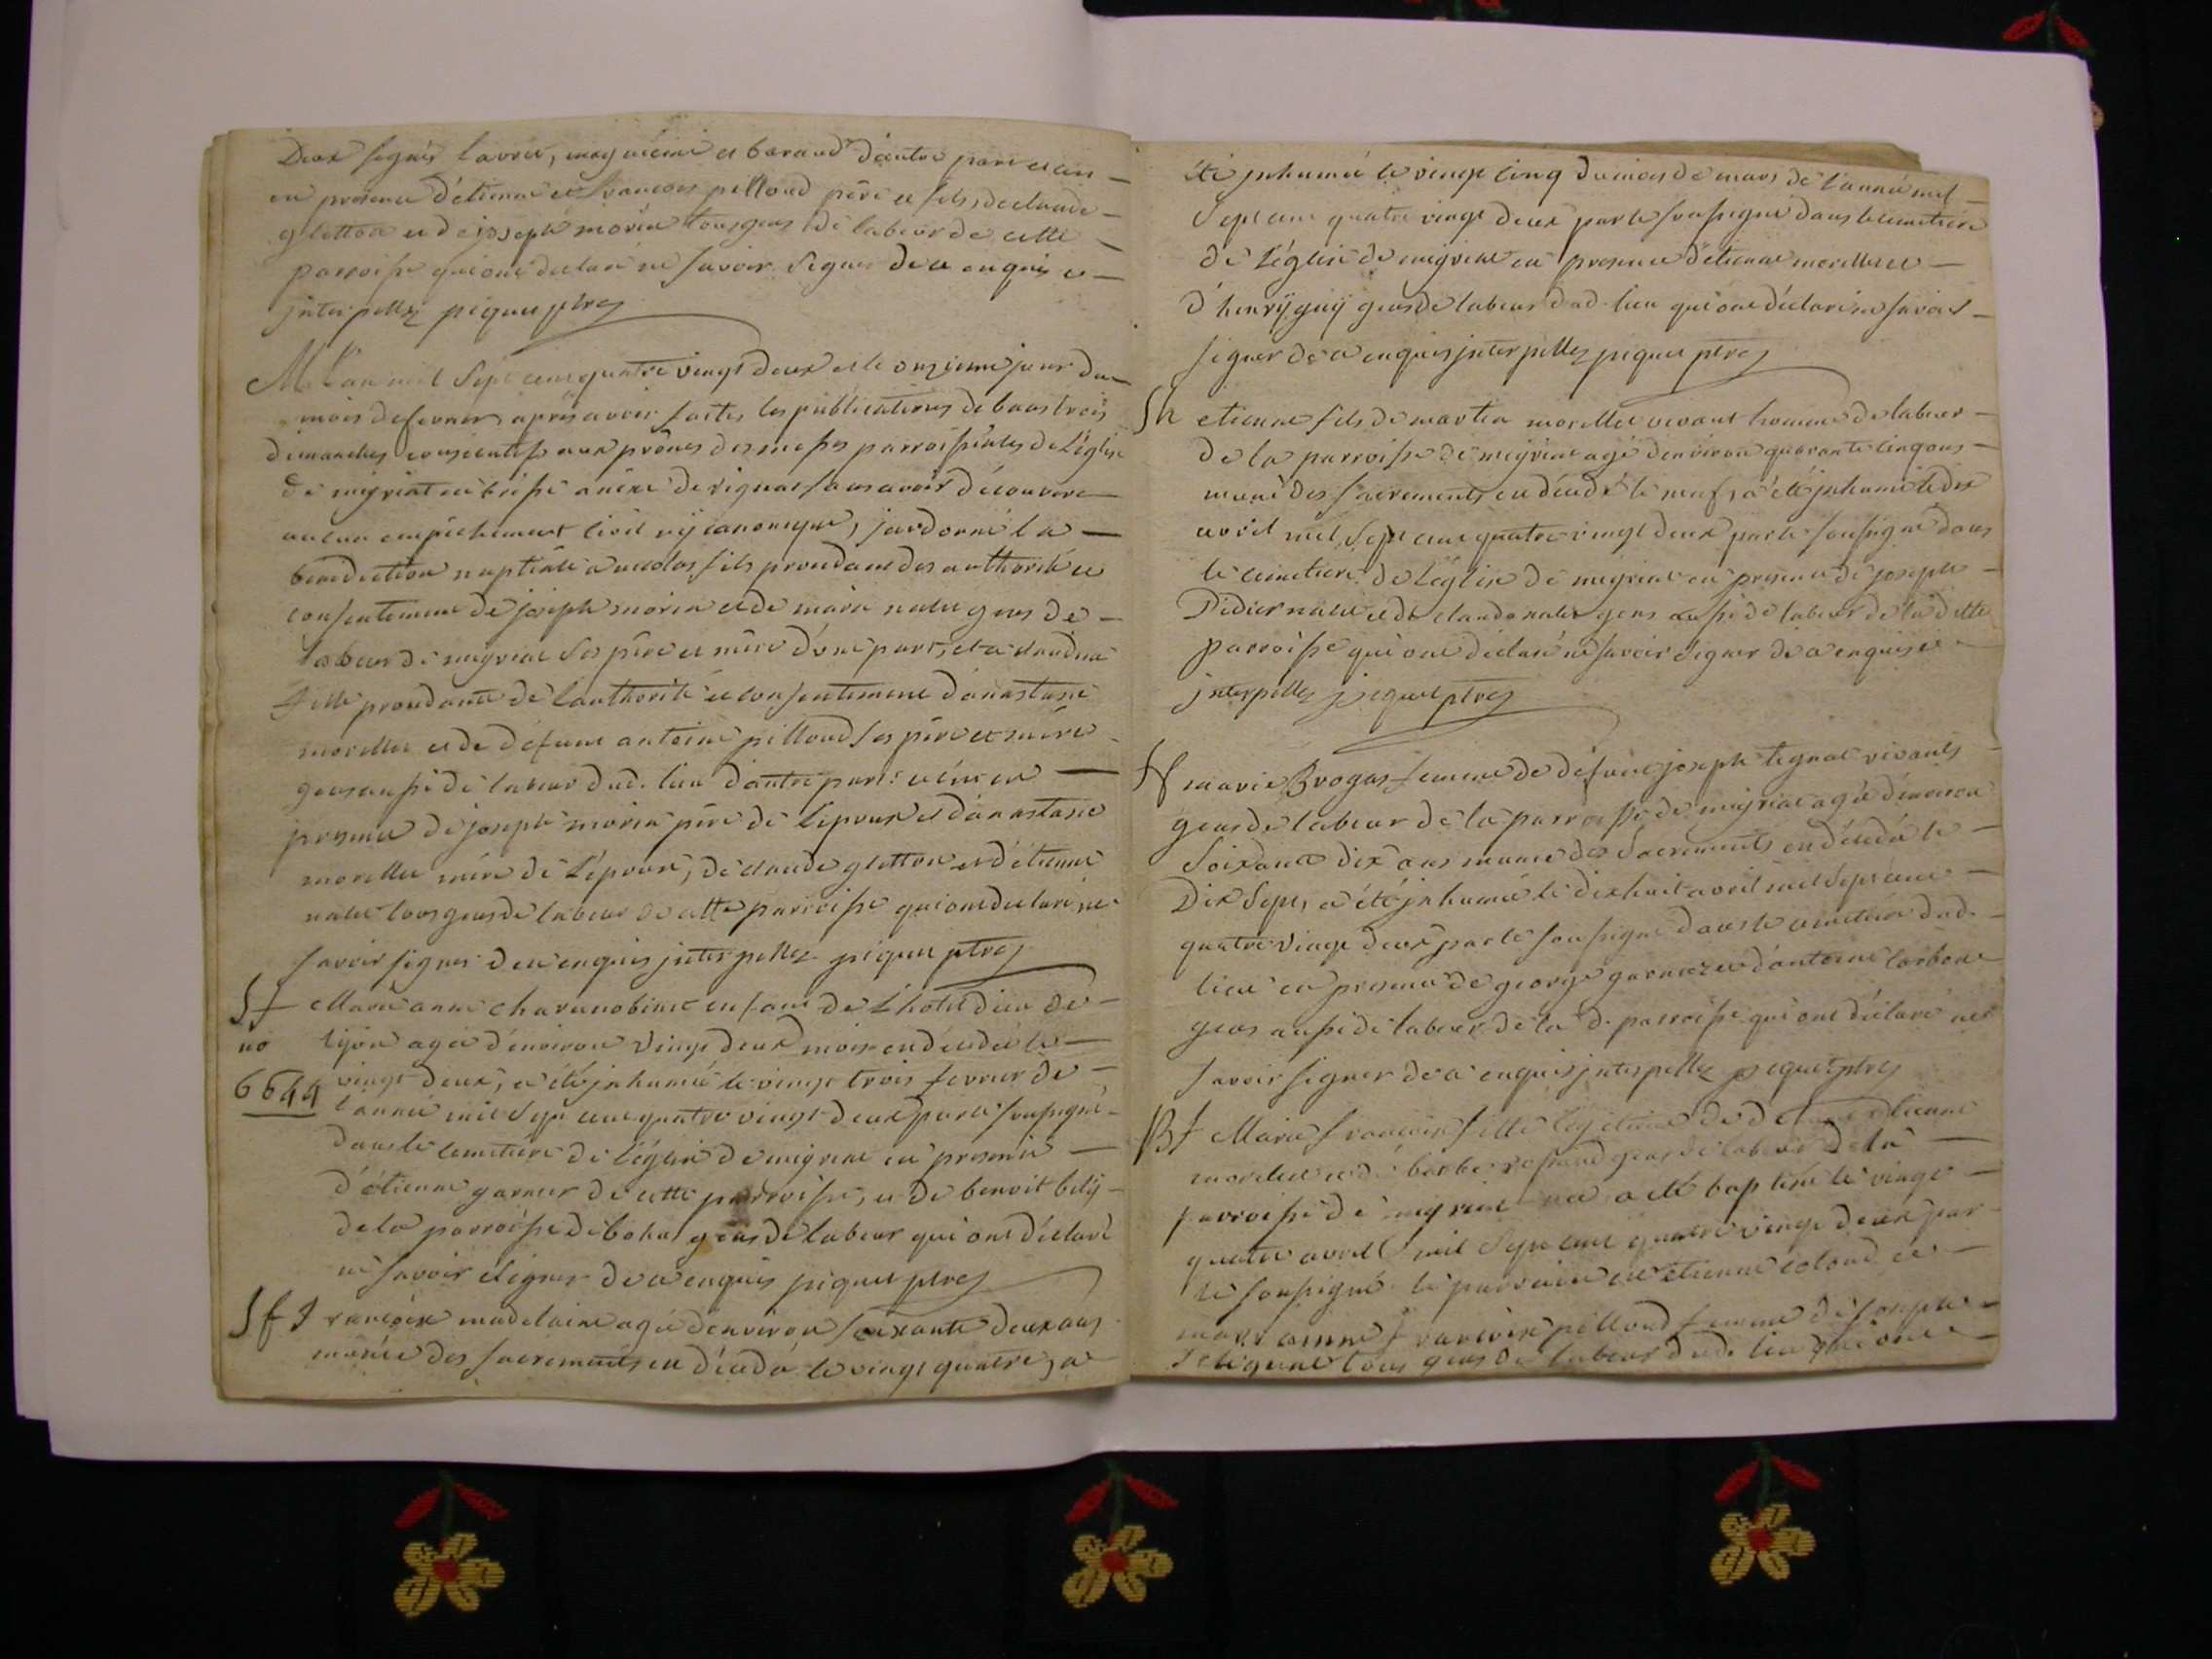 Deux signés Lavrée, magnénié et baraud d'autre part et en
en presence d'etienne et francois pilloud père et fils, de claude
gletton et de joseph morin tous gens de labeur de cette
parroisse qui ont declaré ne savoir signer de ce enquis et
jnterpellez piquet ptre
M L'an mil sept cent quatre vingt deux et le onzieme jour du
mois de fevrier après avoir faites les publications de bans trois
dimanches consecutifs aux prônes des messes parroissiales de L'église
de meyriat en bresse anexe de rignat sans avoir découvert
aucun empêchement civil nÿ canonique, j'ai donné la
benediction nuptiale a nicolas fils procedant des authorité et
consentement de joseph morin et de marie nalet gens de
labeur de meyriat ses père et mère d'une part, et a claudine
fille procedante de l'authorité et consentement d'anastasie
morellet et de defunt antoine pilloud ses père et mère
gens aussi de labeur dud. lieu d'autre part: et c'en en
presence de joseph morin père de l'epoux et d'anastasie
morellet mère de l'épouse, de claude gletton et d'etienne
nalet tous gens de labeur de cette parroisse qui ont declaré ne
savoir signer de ce enquis jnterpellez piquet ptre
Sf Marie anne enfant de L'hotel dieu de
no lÿon agée d'environ vingt deux mois en décédée le
6644 vingt deux, a été jnhumée le vingt trois fevrier de
l'année mil sept cent quatre vingt deux par le soussigné
dans le cemetiere de L'église de meyriat en presence
d'étienne garnier de cette parroisse, et de benoit belÿ
de la parroisse de bohas gens de labeur qui ont déclaré
ne savoir signer de ce enquis piquet ptre
Sf francoise madelaine agée d'environ soixante deux ans
munie des sacrements en décédé le vingt quatre, a
été jnhumée le vingt cinq du mois de mars de l'année mil
sept cent quatre vingt deux par le soussigné dans le cemetiere
de L'église de meyriat en presence d'etienne morellet et
d'henrÿ guÿ gens de labeur dud. lieu qui ont déclaré ne savoir
signer de ce enquis jnterpellez piquet ptre
Sh etienne fils de martin morellet vivant homme de labeur
de la parroisse de meyriat agé d'environ quarante cinq ans
muni des sacrements en décédé le neuf, a été jnhumé le dix
avril mil sept cent quatre vingt deux par le soussigné dans
le cemetiere de L'église de meyriat en presence de joseph
Didier nalet et de claude nalet gens aussi de labeur de la ditte
parroisse qui ont déclaré ne savoir signer de ce enquis et
jnterpellez piquet ptre
Sf marie Brogas femme de défunt joseph tignat vivants
gens de labeur de la parroisse de meyriat agée d'environ
soixante dix ans munie des sacrements en décédée le
Dix sept, a été jnhumée le dix huit avril mil sept cent
quatre vingt deux par le soussigné dans le cemetiere dud.
lieu en presence de george et d'antoine carbon
gens aussi de labeur de la d. parroisse qui ont déclaré ne
savoir signer de ce enquis jnterpellez piquet ptre
Bf Marie francoise fille légitime de etienne
morellet et de barbe gens de labeur de la
parroisse de meyriat née a été baptisée le vingt
quatre avril mil sept cent quatre vingt deux par
le soussigné le parrain est etienne coloud et
marrainne francoise pilloud femme de joseph
tignat tous gens de labeur dud. lieu qui ont